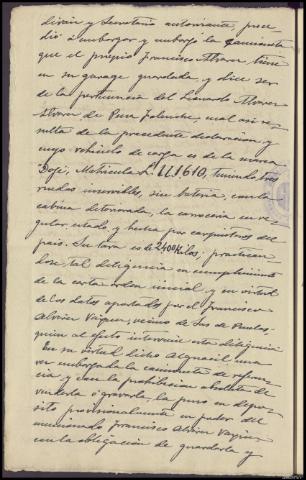 divan y Secretario autorizante, proce-
dió a embargar y embargó la camioneta
que el propio Francisco Alvarez tiene
en su garage guardada, y dice ser
de la pertenencia del Leonardo Alvarez
Alvarez de Pena Folenche, cual asi re-
sulta de la precedente declaracion, y
cuyo vehiculo de carga es de la marca
"Doje", Matricula L. LL1610, teniendo tres
ruedas inservibles, sin bateria, con la
cabina deteriorada, la carroceria en re-
gular estado, y hecha por carpinteros del
pais. Su tara es de 2400 Kilos; practican
dose tal diligencia en cumplimiento
de la carta orden inicial, y en virtud
de los datos aportados por el Francisco
Alvarez Vazquez, vecino de
quien al efecto interviene esta diligencia
En su virtud dicho Alguacil una
vez embargada la camioneta de referen-
cia y con la prohibicion absoluta de
venderla o gravarla, la puso en depo-
sito provisionalmente en poder del
mencionado Francisco Alvarez Vazquez,
con la obligación de guardarla y